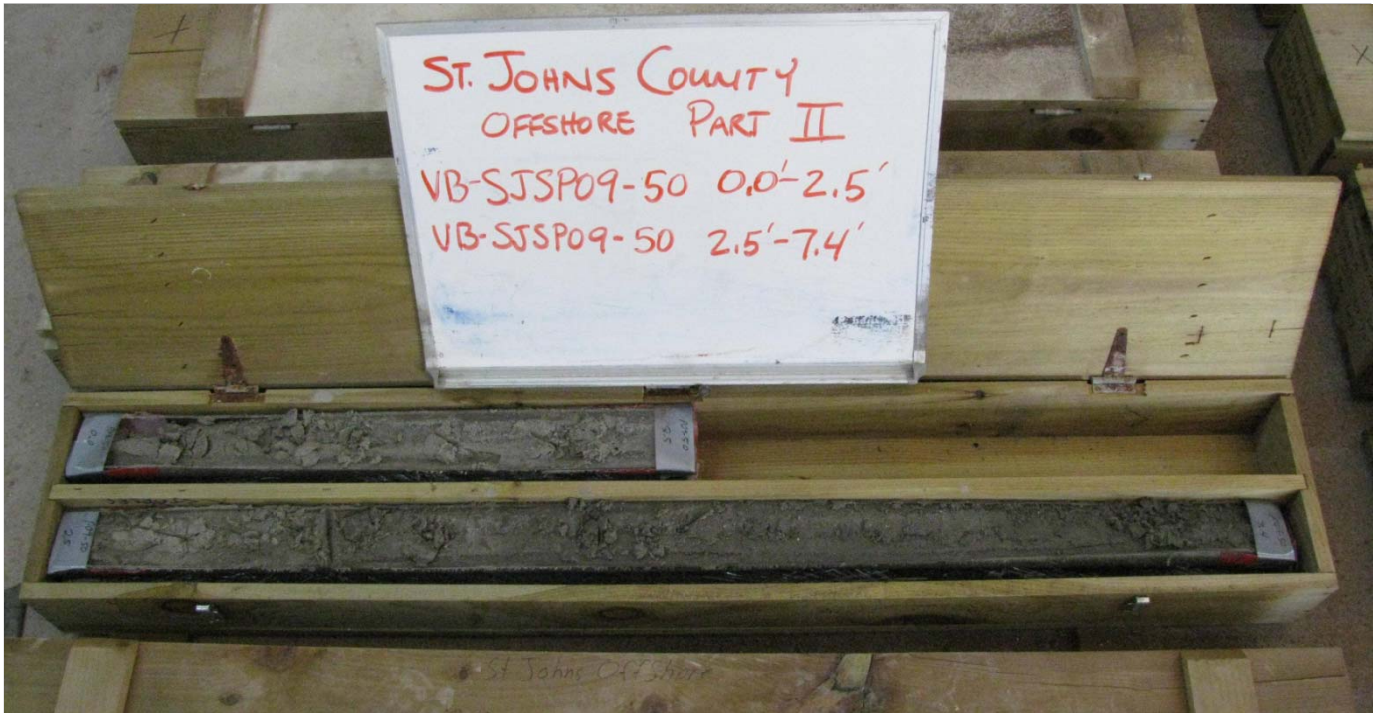 ST. JOHNS COUNTY
OFFSHORE PART II
VB-SJSP09-50 0.0'-2.5'
VB-SJSP09-50 2.5'-7.4'
0.0
2.5
2.5
St Johns Offshore